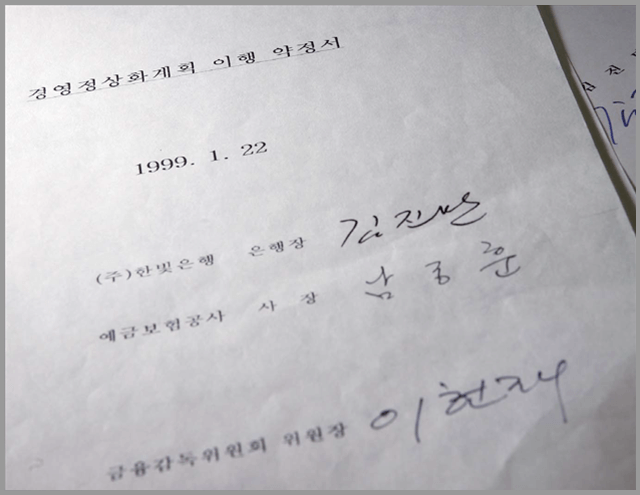 경영정상화계획 이행 약정서
1999. 1. 22
(주)한빛은행 은행장 김진만
예금보험공사 사 장 남궁훈
금융감독위원회 위원장 이헌재